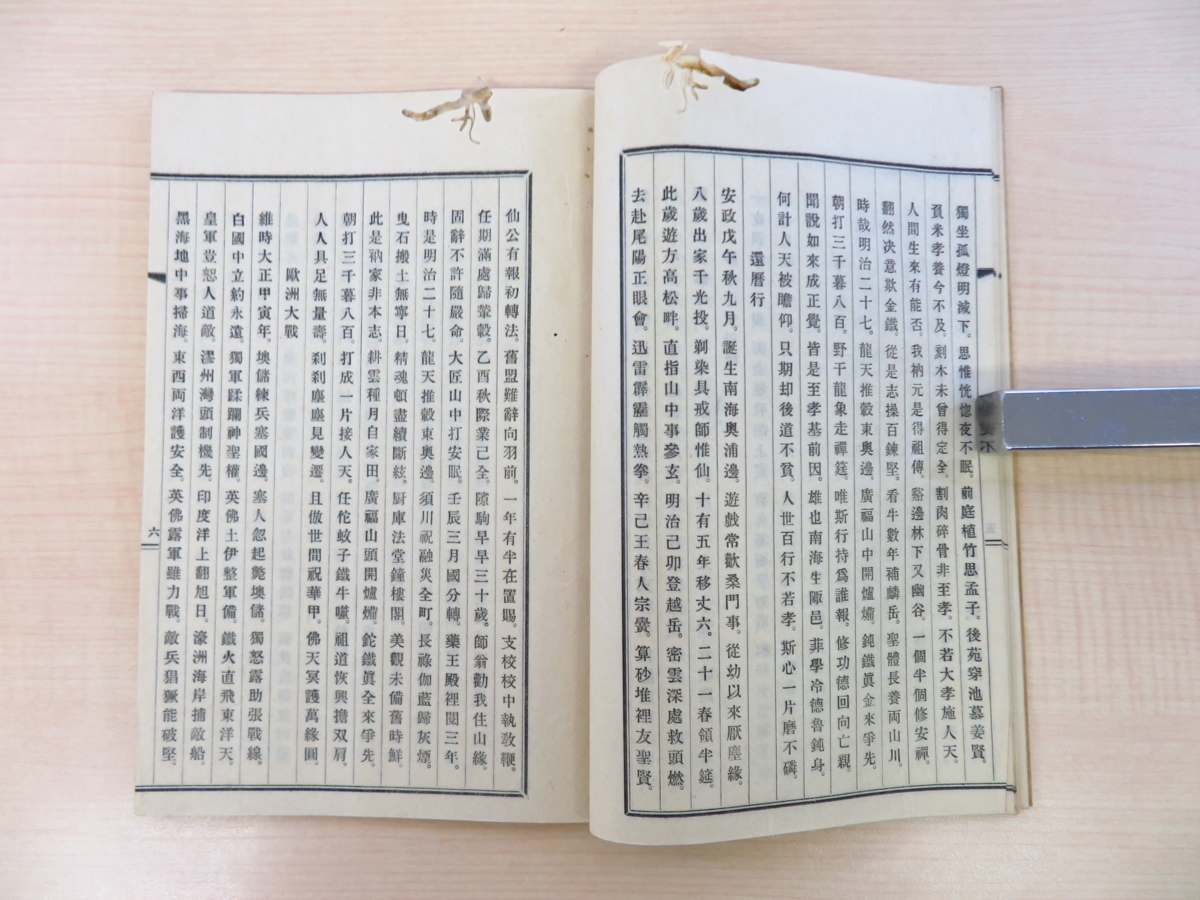 獨坐孤燈明滅下。思惟恍惚夜不眠。前庭植竹思孟子。後苑穿池慕姜賢。
負米孝養今不及。刻木未曾得定全。割肉碎骨非至孝。不若大孝施人天。
人間生來有能否。我衲元是得祖傳。谿邊林下又幽谷。一個半個修安禪。
翻然決意欺金鐵。從是志操百鍊堅。看牛數年補麟岳。聖體長養両山川。
時哉明治二十七。龍天推轂東奥邊。廣福山中開爐鞴。鈍鐵眞金來爭先。
朝打三千暮八百。野干龍象走禪筵。唯斯行持爲誰報。修功德回向亡親。
聞說如來成正覺。皆是至孝基前因。雄也南海生陬邑。菲學冷德魯鈍身。
何計人天被瞻仰。只期却後道不貧。人世百行不若孝。斯心一片磨不磷。
還曆行
安政戊午秋九月。誕生南海奥浦邊。遊戲常歡桑門事。從幼以來厭塵緣。
八歲出家千光投。剃染具戒師惟仙。十有五年移丈六。二十一春領半筵。
此歲遊方高松畔。直指山中事參玄。明治己卯登越岳。密雲深處救頭燃。
去赴尾陽正眼會。迅雷霹靂觸熱拳。辛己王春人宗黌。算砂堆裡友聖賢。
仙公有報初轉法。舊盟難辭向羽前。一年有半在置賜。支校校中執敎鞭。
任期滿處歸輦轂。乙酉秋際業已全。隙駒早早三十歲。師翁勸我住山緣。
固辭不許隨嚴命。大匠山中打安眠。壬辰三月國分轉。藥王殿裡閱三年。
時是明治二十七。龍天推轂東奥邊。須川祝融災全町。長祿伽藍歸灰煙。
曳石搬土無寧日。精魂頓盡續斷絃。厨庫法堂鐘樓閣。美觀未備舊時鮮。
此是衲家非本志。耕雲種月自家田。廣福山頭開爐鞴。鉈鐵眞全來爭先。
朝打三千暮八百。打成一片接人天。任佗蚊子鐵牛嚙。祖道恢興擔双肩。
人人具足無量壽。刹刹塵塵見變遷。且倣世間祝華甲。佛天冥護萬緣圓。
歐洲大戰
維時大正甲寅年。墺儲練兵塞國邊。塞人忽起斃墺儲。獨怒露助張戰線。
白國中立約永遠。獨軍蹂躙神聖權。英佛土伊整軍備。鐵火直飛東洋天。
皇軍豈恕人道敵。膠州灣頭制機先。印度洋上翻旭日。濠洲海岸捕敵船。
黑海地中事掃海。東西両洋護安全。英佛露軍雖力戰。敵兵猖獗能破堅。
六